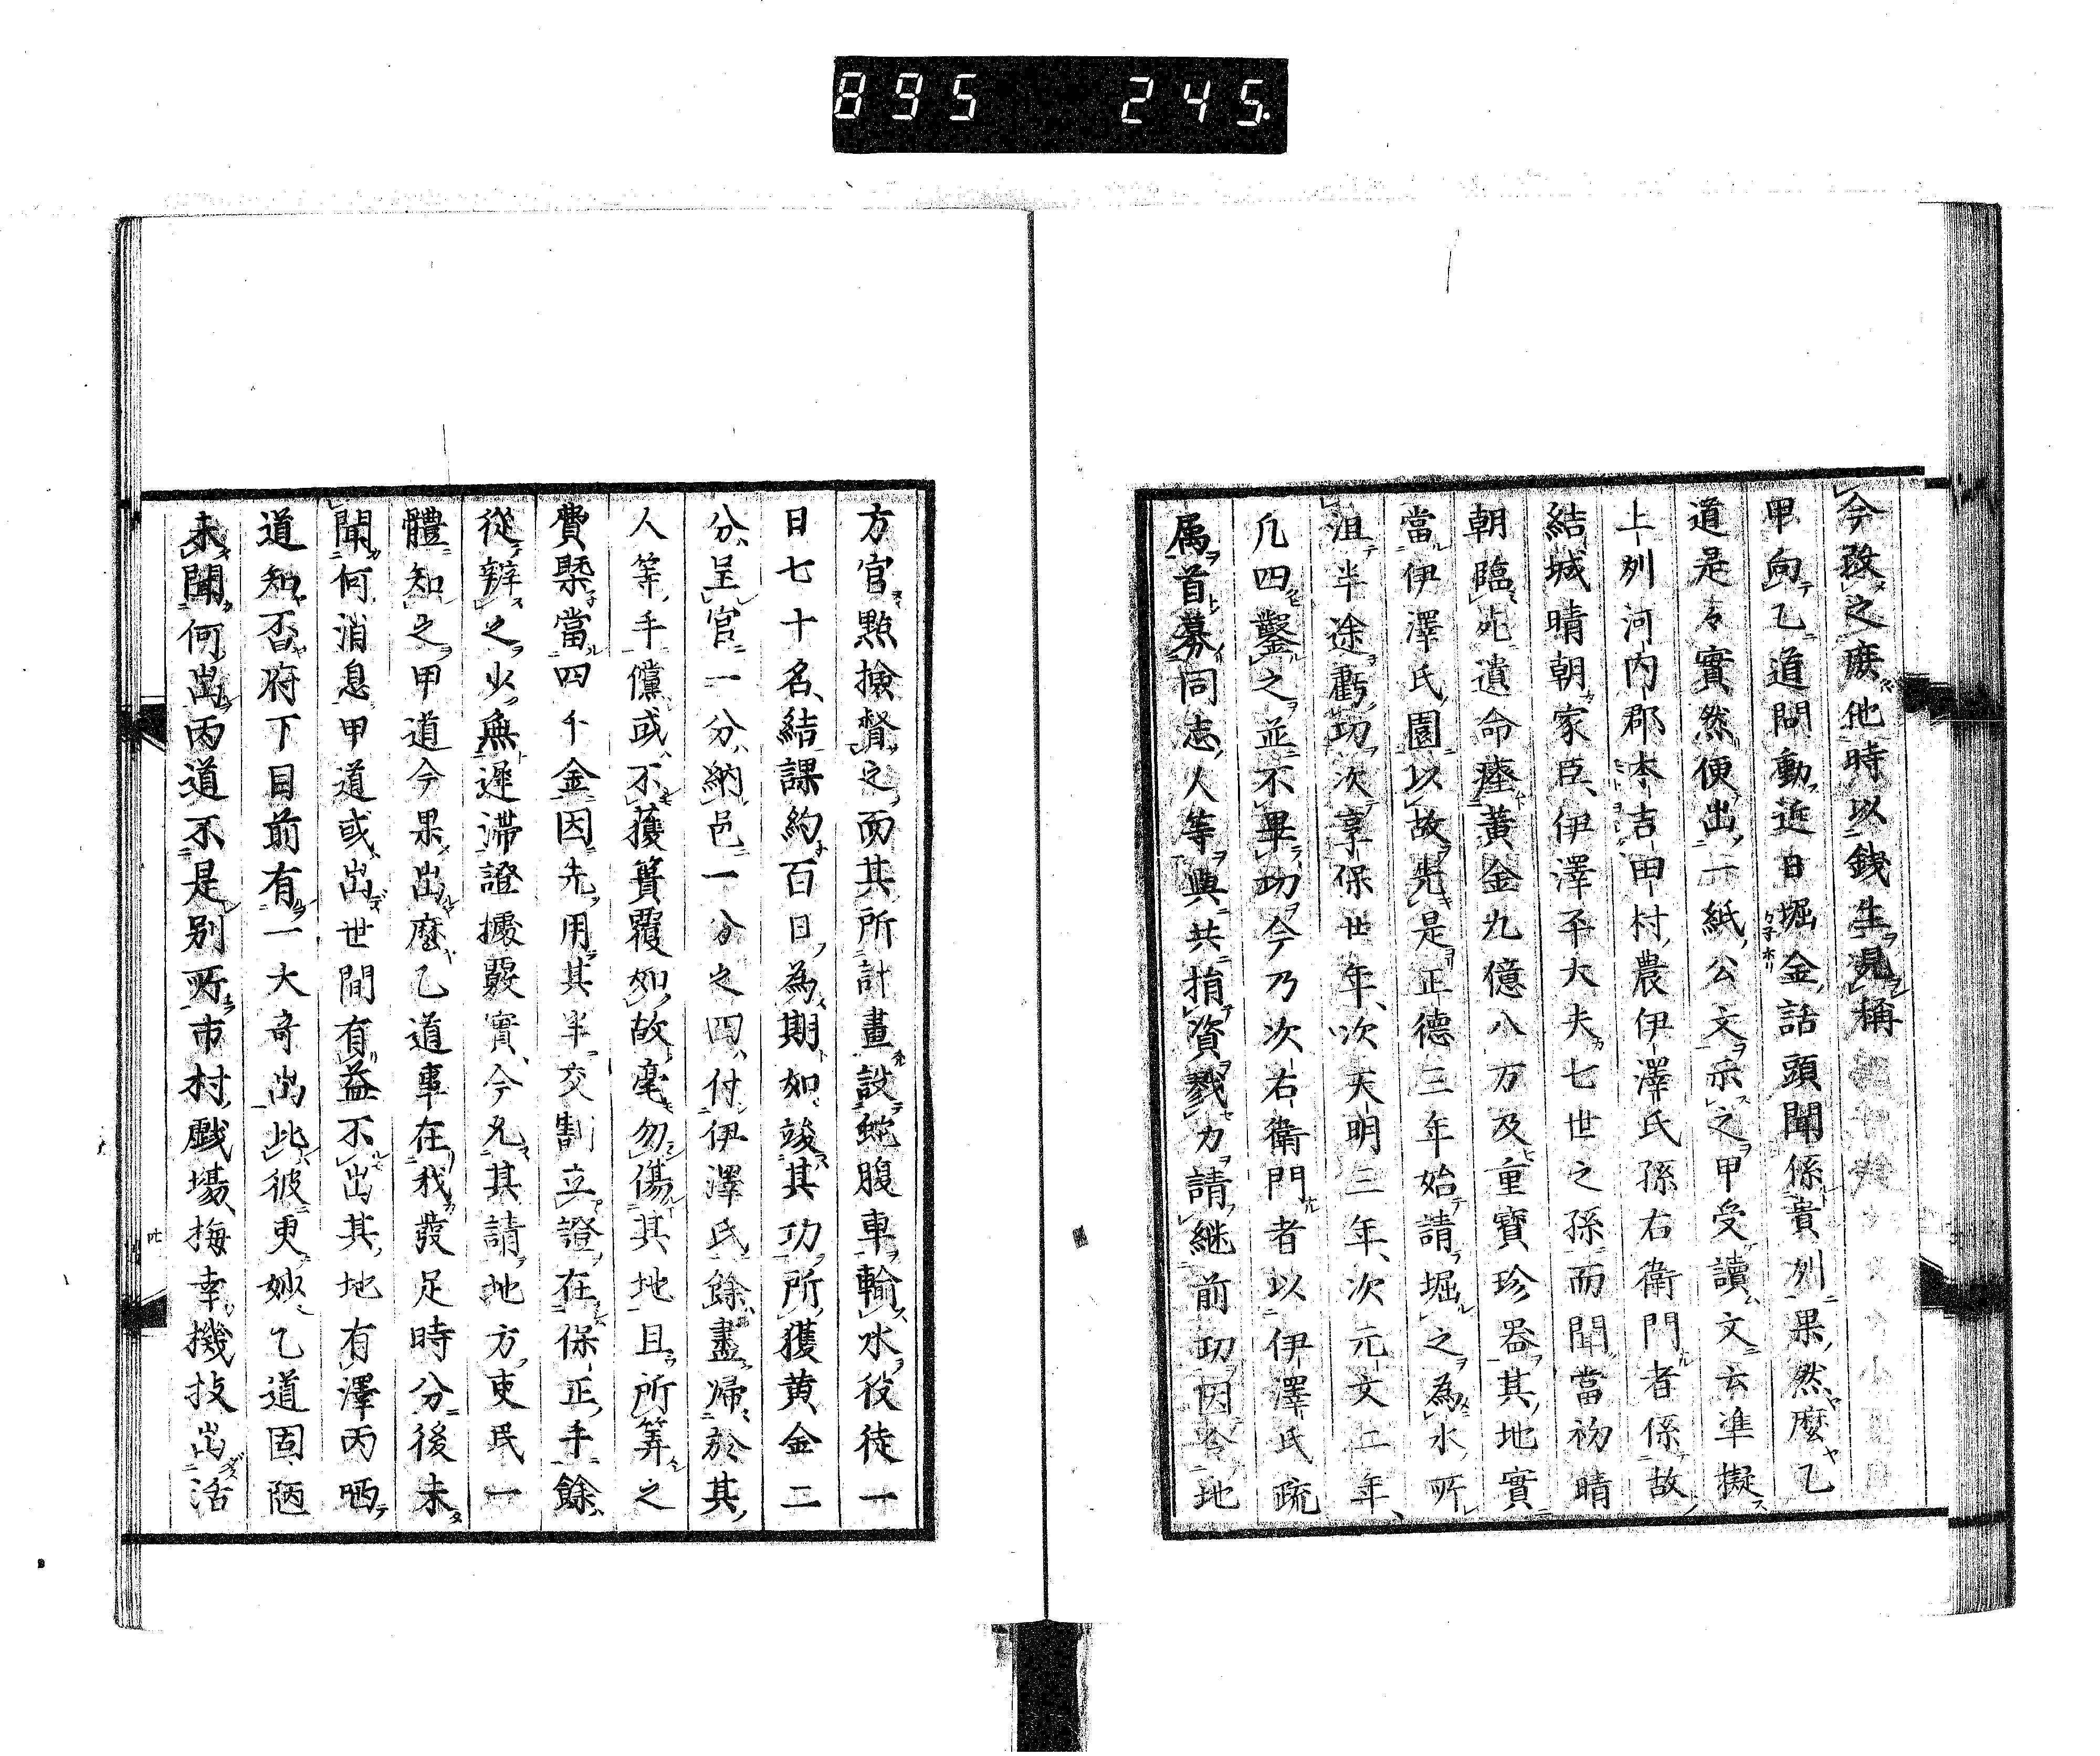 895 245
今改之庶他時以錢生見稱
甲向乙道問動近日堀金話頭聞係貴州果然麼乙
道是々實然便出一紙公文示之甲受讀文云準擬
上州河内郡本吉田村農伊澤氏孫右衛門者係故
結城晴朝家臣伊澤平大夫七世之孫而聞當初晴
朝臨死遺命瘞黃金九億八万及重寶珍器其地實
當伊澤氏園以故先是正德三年始請堀之為水所
沮半途虧功次享保廿年次天明三年次元文二年
凡四鑿之並不畢功今乃次右衛門者以伊澤氏疏
属首募同志人等與共捐資戮力請継前功因令地
方官點撿督之而其所計畫設蛇腹車輸水役徒一
日七十名結課約百日為期如竣其功所獲黄金二
分呈官一分納邑一分之四付伊澤氏餘盡帰於其
人等手儻或不獲簣覆如故毫勿傷其地且所筭之
費槩當四千金因先用其半交割立證在保正手餘
從辨之以無遲滞證據覈實今允其請地方吏民一
體知之甲道今果出麼乙道事在我發足時分後未
聞何消息甲道或出世間有益不出其地有澤丙哂
道知否府下目前有一大奇出比彼更妙乙道固陋
未聞何出丙道不是別所市村戲場梅幸機技出活